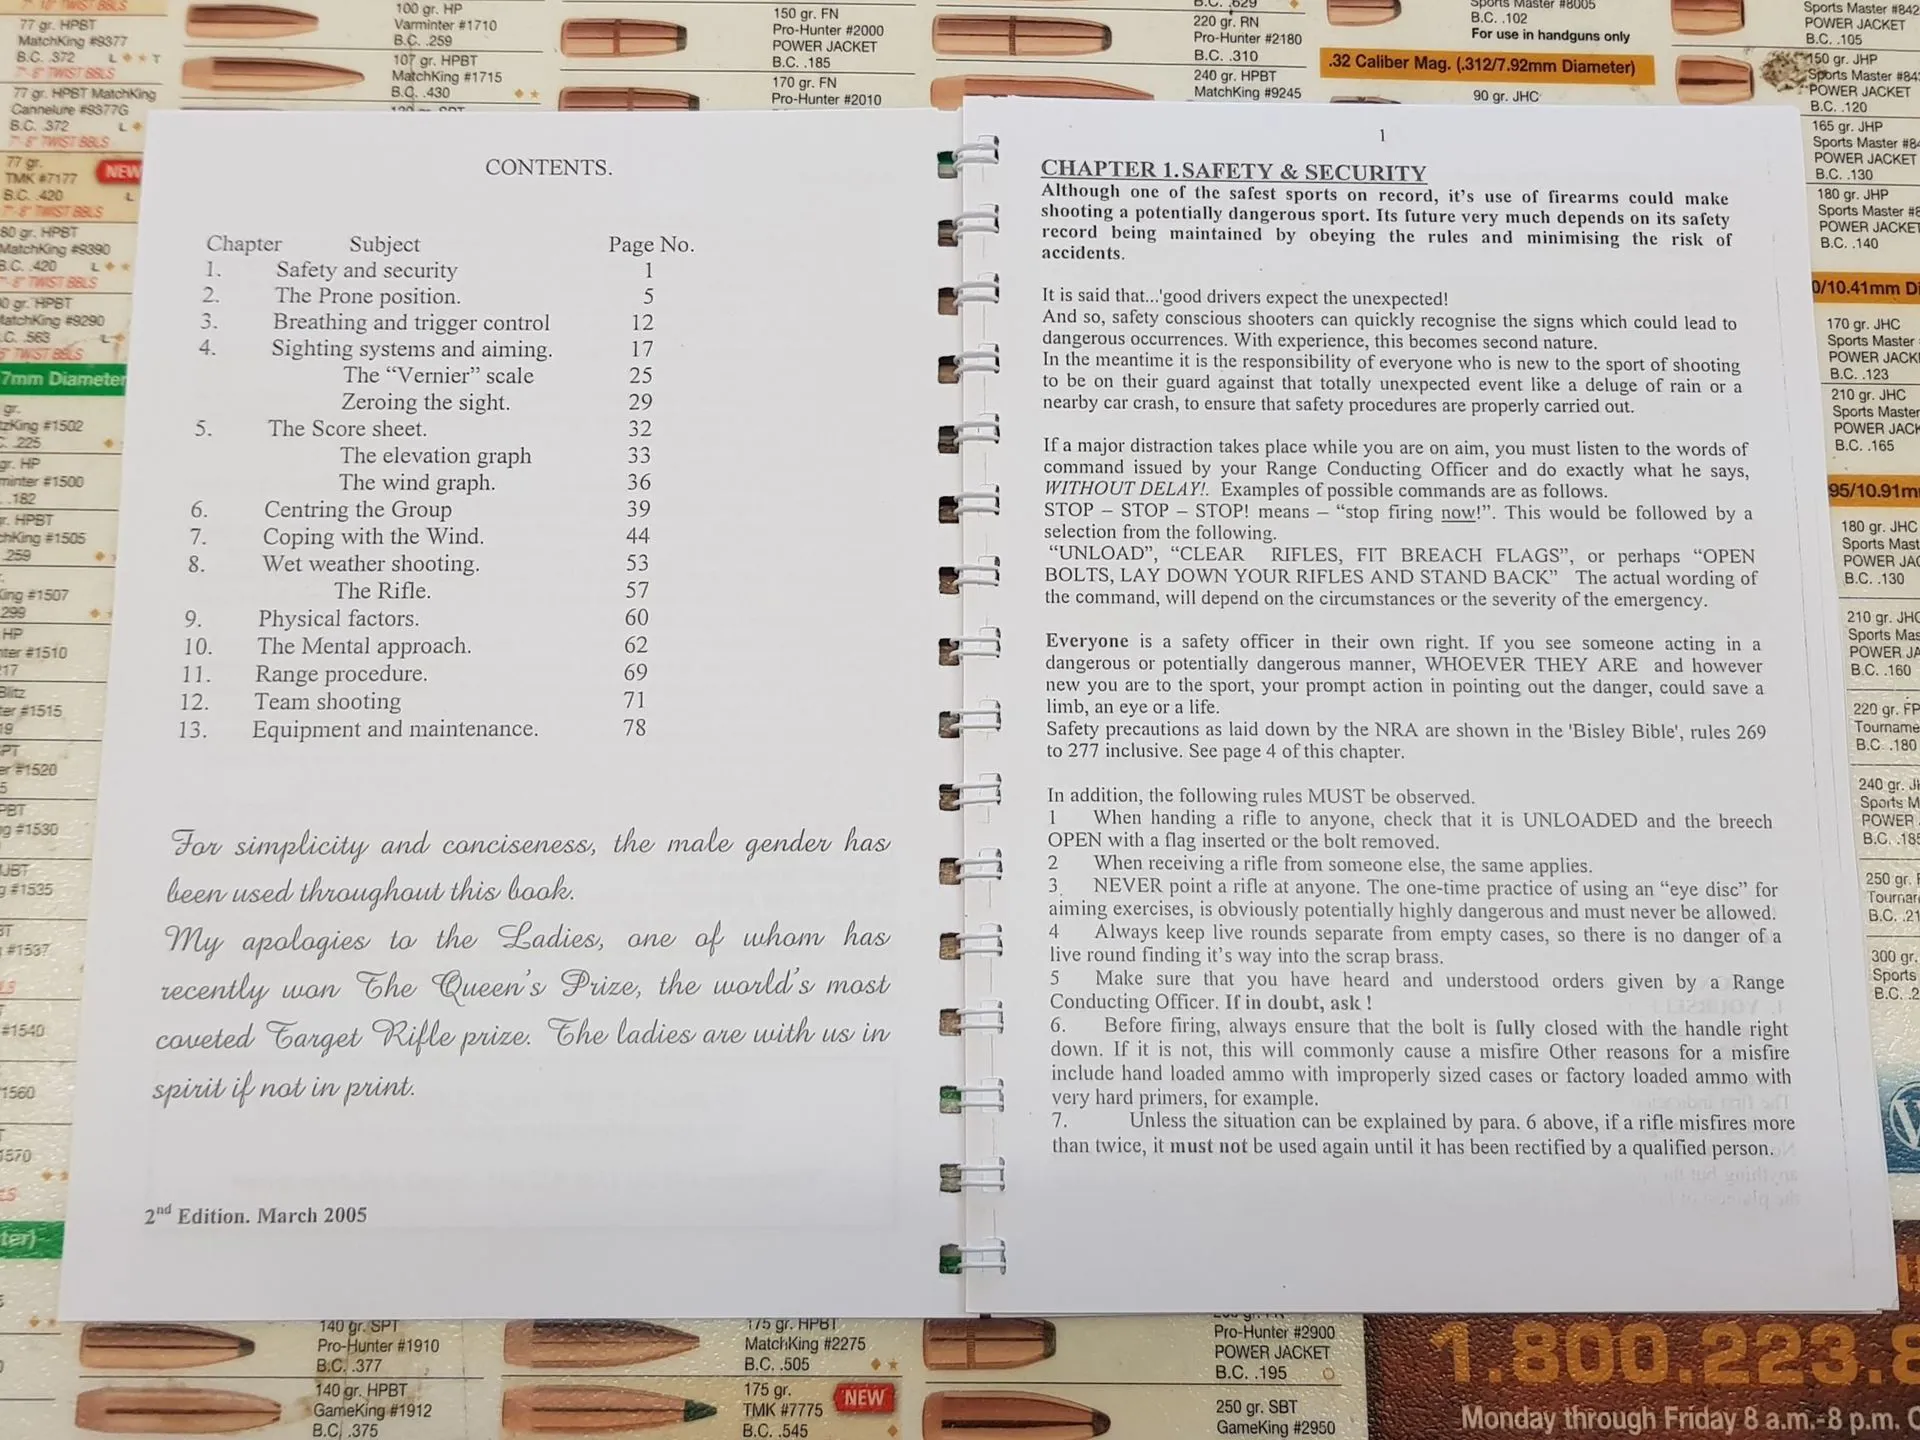 77 gr. HPBT
MatchKing #9377
B.C. .372 L T
7"-8" TWIST BBLS
77 gr. HPBT MatchKing
Cannelure #9377G
B.C. .372 L
7"-8" TWIST BBLS
77 gr. NEW
TMK #7177
B.C. .420 L
7"-8" TWIST BBLS
80 gr. HPBT
MatchKing #9390
B.C. .420 L
7"-8" TWIST BBLS
HPBT
MatchKing #9290
B.C. .563
TWIST BBLS
7mm Diameter
100 gr. HP
Varminter #1710
B.C. .259
107 gr. HPBT
MatchKing #1715
B.C. .430
150 gr. FN
Pro-Hunter #2000
POWER JACKET
B.C. .185
170 gr. FN
Pro-Hunter #2010
220 gr. RN
Pro-Hunter #2180
B.C. .310
240 gr. HPBT
MatchKing #9245
Sports Master #8005
B.C. .102
For use in handguns only
.32 Caliber Mag. (.312/7.92mm Diameter)
90 gr. JHC
POWER JACKET
B.C. .105
150 gr. JHP
POWER JACKET
B.C. .120
165 gr. JHP
POWER JACKET
B.C. .130
180 gr. JHP
POWER JACKET
B.C. .140
170 gr. JHC
Sports Master
B.C. .123
210 gr. JHC
Sports Master
B.C. .165
180 gr. JHC
B.C. .130
B.C. .160
B.C. .180
CONTENTS.
Chapter Subject Page No.
1. Safety and security 1
2. The Prone position. 5
3. Breathing and trigger control 12
4. Sighting systems and aiming. 17
The “Vernier” scale 25
Zeroing the sight. 29
5. The Score sheet. 32
The elevation graph 33
The wind graph. 36
6. Centring the Group 39
7. Coping with the Wind. 44
8. Wet weather shooting. 53
The Rifle. 57
9. Physical factors. 60
10. The Mental approach. 62
11. Range procedure. 69
12. Team shooting 71
13. Equipment and maintenance. 78
For simplicity and conciseness, the male gender has
been used throughout this book.
My apologies to the Ladies, one of whom has
recently won The Queen's Prize, the world's most
coveted Target Rifle prize. The ladies are with us in
spirit if not in print.
2nd Edition. March 2005
1
CHAPTER 1.SAFETY & SECURITY
Although one of the safest sports on record, it's use of firearms could make
shooting a potentially dangerous sport. Its future very much depends on its safety
record being maintained by obeying the rules and minimising the risk of
accidents.
It is said that...'good drivers expect the unexpected!
And so, safety conscious shooters can quickly recognise the signs which could lead to
dangerous occurrences. With experience, this becomes second nature.
In the meantime it is the responsibility of everyone who is new to the sport of shooting
to be on their guard against that totally unexpected event like a deluge of rain or a
nearby car crash, to ensure that safety procedures are properly carried out.
If a major distraction takes place while you are on aim, you must listen to the words of
command issued by your Range Conducting Officer and do exactly what he says,
WITHOUT DELAY!. Examples of possible commands are as follows.
STOP – STOP – STOP! means – “stop firing now!”. This would be followed by a
selection from the following.
“UNLOAD”, “CLEAR RIFLES, FIT BREACH FLAGS”, or perhaps “OPEN
BOLTS, LAY DOWN YOUR RIFLES AND STAND BACK” The actual wording of
the command, will depend on the circumstances or the severity of the emergency.
Everyone is a safety officer in their own right. If you see someone acting in a
dangerous or potentially dangerous manner, WHOEVER THEY ARE and however
new you are to the sport, your prompt action in pointing out the danger, could save a
limb, an eye or a life.
Safety precautions as laid down by the NRA are shown in the 'Bisley Bible', rules 269
to 277 inclusive. See page 4 of this chapter.
In addition, the following rules MUST be observed.
1 When handing a rifle to anyone, check that it is UNLOADED and the breech
OPEN with a flag inserted or the bolt removed.
2 When receiving a rifle from someone else, the same applies.
3. NEVER point a rifle at anyone. The one-time practice of using an “eye disc” for
aiming exercises, is obviously potentially highly dangerous and must never be allowed.
4 Always keep live rounds separate from empty cases, so there is no danger of a
live round finding it's way into the scrap brass.
5 Make sure that you have heard and understood orders given by a Range
Conducting Officer. If in doubt, ask !
6. Before firing, always ensure that the bolt is fully closed with the handle right
down. If it is not, this will commonly cause a misfire Other reasons for a misfire
include hand loaded ammo with improperly sized cases or factory loaded ammo with
very hard primers, for example.
7. Unless the situation can be explained by para. 6 above, if a rifle misfires more
than twice, it must not be used again until it has been rectified by a qualified person.
140 gr. SPT
Pro-Hunter #1910
B.C. .377
140 gr. HPBT
GameKing #1912
B.C. .375
175 gr. HPBT
MatchKing #2275
B.C. .505
175 gr.
TMK #7775 NEW
B.C. .545
Pro-Hunter #2900
POWER JACKET
B.C. .195
250 gr. SBT
GameKing #2950
1.800.223.8
Monday through Friday 8 a.m.-8 p.m.